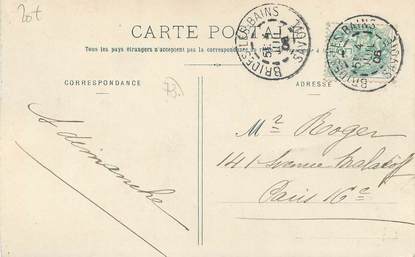 20t
CARTE POSTALE
Tous les pays étrangers n'acceptent pas la correspondance
BRIDES-LES-BAINS
SAVOIE
BRIDES-LES-BAINS
SAVOIE
CORRESPONDANCE
ADRESSE
A dimanche
Mr Roger
141 Avenue Malakoff
Paris 16e